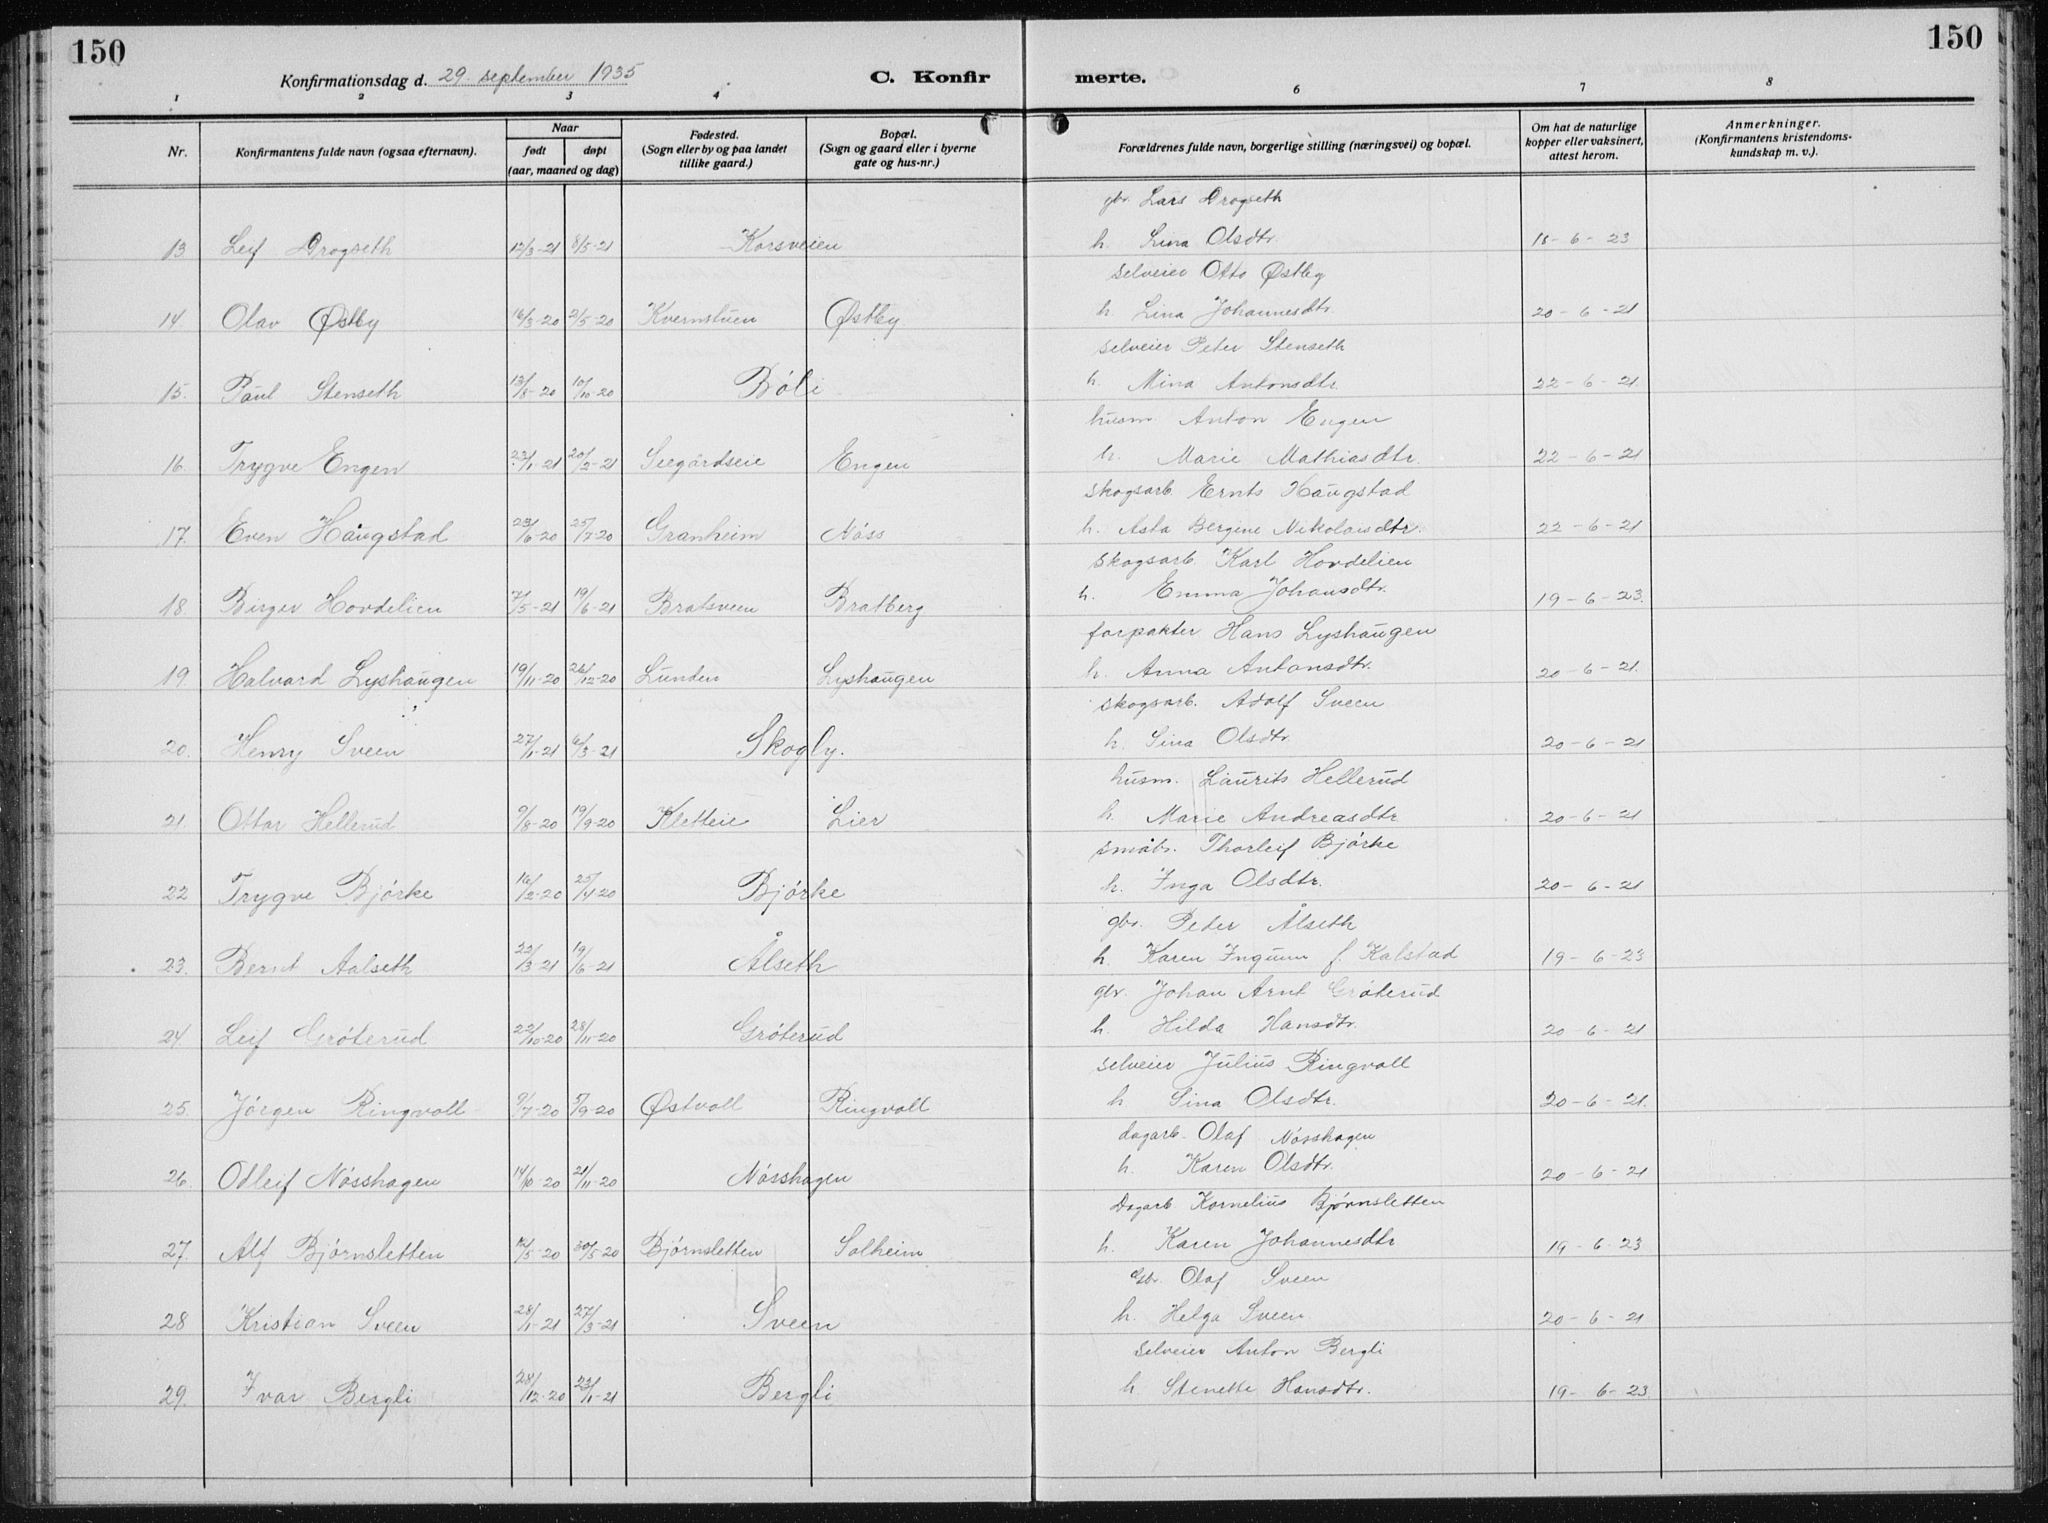 150
150
Konfirmationsdag d. 29. september 1935
C. Konfir merte.
1 2 3 4 5 6 7 8
Nr.
Konfirmantens fulde navn (ogsaa efternavn).
Naar
født
døpt
(aar, maaned og dag)
Fødested.
(Sogn eller by og paa landet
tillike gaard.)
Bopæl.
(Sogn og gaard eller i byerne
gate og hus-nr.)
Forældrenes fulde navn, borgerlige stilling (næringsvei) og bopæl.
Om hat de naturlige
kopper eller vaksinert,
attest herom.
Anmerkninger.
(Konfirmantens kristendoms-
kundskap m. v.).
gbr. Lars Drogseth
13 Leif Drogseth 12/3-21 8/5-21 Korsveien h. Lina Olsdtr. 18-6-23
selveier Otto Østby
14 Olav Østby 16/3-20 2/5-20 Kvernstuen Østby h. Lina Johannesdtr. 20-6-21
selveier Peter Stenseth
15. Paul Stenseth 13/8-20 10/10-20 Bøli h. Mina Antonsdtr. 22-6-21.
husm. Anton Engen
16. Trygve Engen 23/1-21 20/2-21 Seegårdseie Engen h. Marie Mathiasdtr. 22-6-21
skogsarb. Ernts Haugstad
17. Even Haugstad 23/6-20 25/7-20 Granheim Nöss h. Asta Bergine Nikolaisdtr. 22-6-21
skogsarb. Karl Hovdelien
18 Birger Hovdelien 7/5-21 19/6-21 Bratsveen Bratberg h. Emma Johansdtr. 19-6-23.
forpakter Hans Lyshaugen
19. Halvard Lyshaugen 19/11-20 26/12-20 Lunden Lyshaugen h. Anna Antonsdtr. 20-6-21.
skogsarb. Adolf Sveen
20. Henry Sveen 27/1-21 6/3-21 Skogly. h. Sina Olsdtr. 20-6-21
husm. Laurits Hellerud
21. Ottar Hellerud 9/8-20 19/9-20 Kletteie Lier h. Marie Andreasdtr 20-6-21
småbr. Thorleif Björke
22 Trygve Björke 16/2-20 25/4-20 Björke h. Inga Olsdtr. 20-6-21
gbr. Peder Ålseth
23. Bernt Aalseth 22/3-21 19/6-21 Ålseth h. Karen Ingunn f. Kalstad 19-6-23
gbr. Johan Arnt Gröterud
24. Leif Gröterud 22/10-20 28/11-20 Gröterud h. Hilda Hansdtr. 20-6-21
selveier Julius Ringvoll
25. Jörgen Ringvoll 9/7-20 5/9-20 Østvoll Ringvoll h Sina Olsdtr. 20-6-21.
dagarb. Olaf Nösshagen
26. Odleif Nösshagen 14/10-20 21/11-20 Nösshagen h. Karen Olsdtr. 20-6-21
Dagarb Kornelius Bjørnsletten
27. Alf Björnsletten 12/5-20 30/5-20 Björnsletten Solheim h. Karen Johannesdtr 19-6-23
Gbr. Olaf Sveen
28 Kristian Sveen 28/1-21 27/3-21 Sveen h. Helga Sveen 20-6-21
selveier Anton Bergli
29. Ivar Bergli 28/12-20 23/1-21 Bergli h. Stenette Hansdtr. 19-6-23